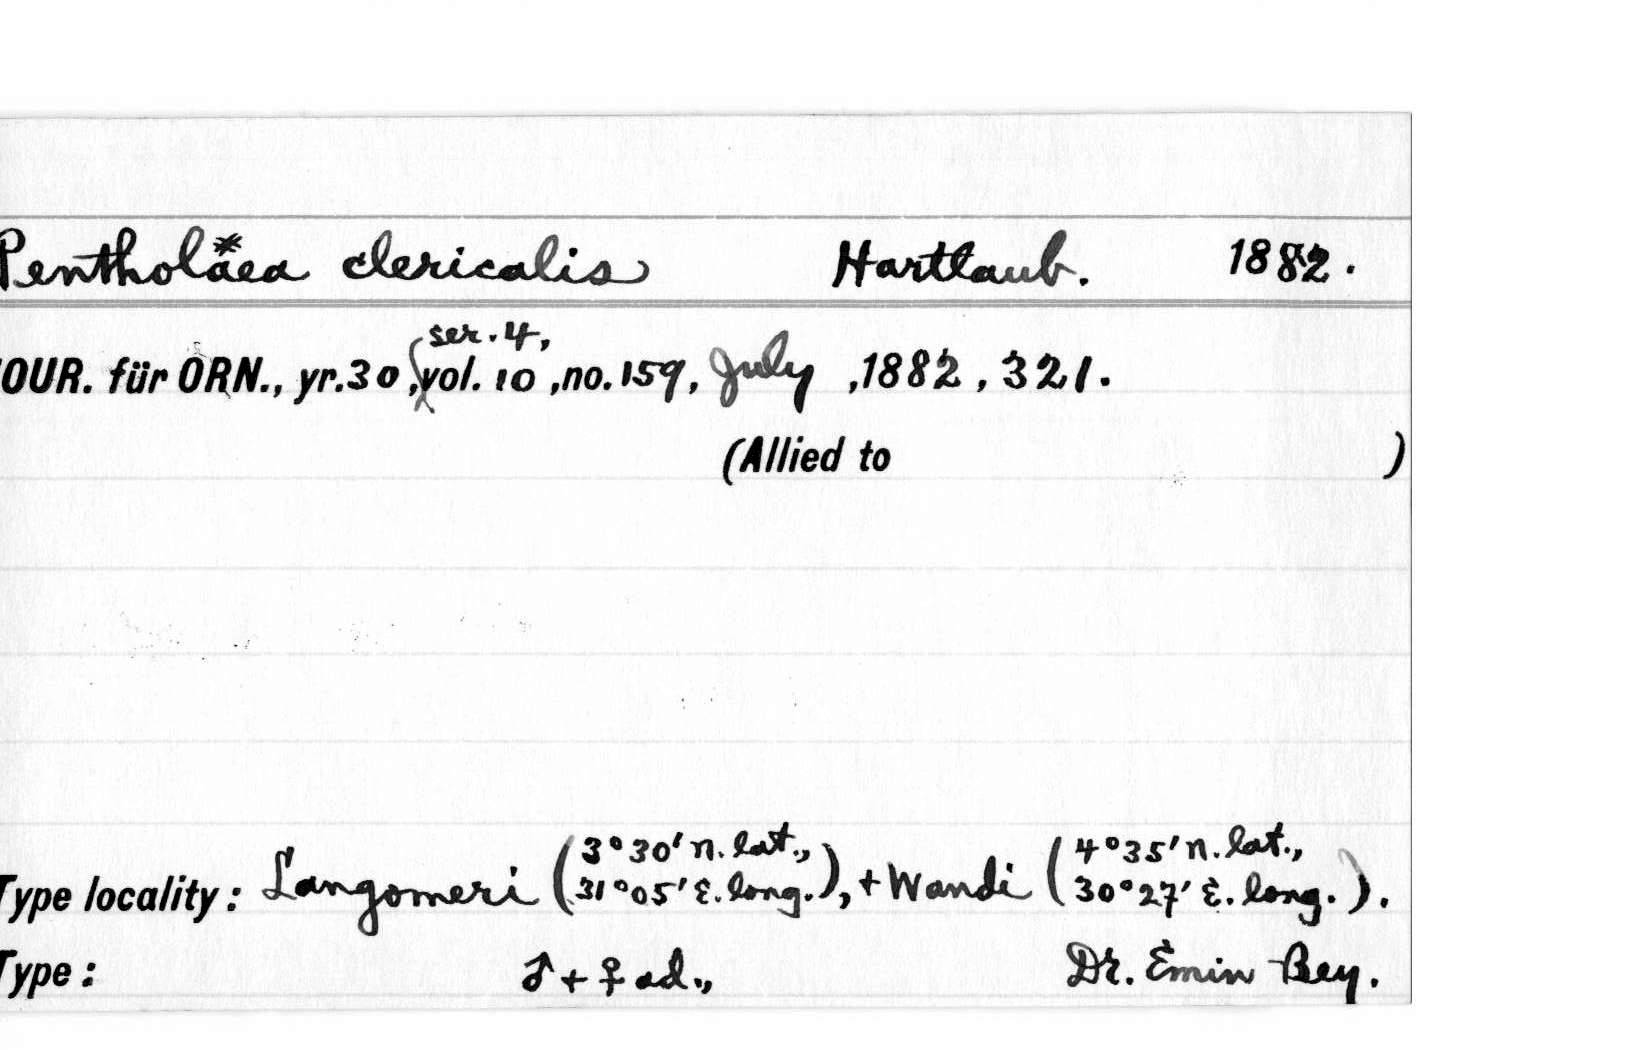 Pentholäea clericalis Hartlaub. 1882.
ser. 4,
OUR. für ORN., yr. 30, vol. 10, no. 159, July, 1882, 321.
(Allied to )
Type locality: Langomeri (3°30' n. lat., 31°05' E. long.), + Wandi (4°35' n. lat., 30°27' E. long.).
Type: ♂ + ♀ ad., Dr. Emin Bey.